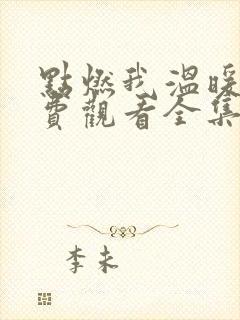 點燃我 溫暖
費觀看全集
李未